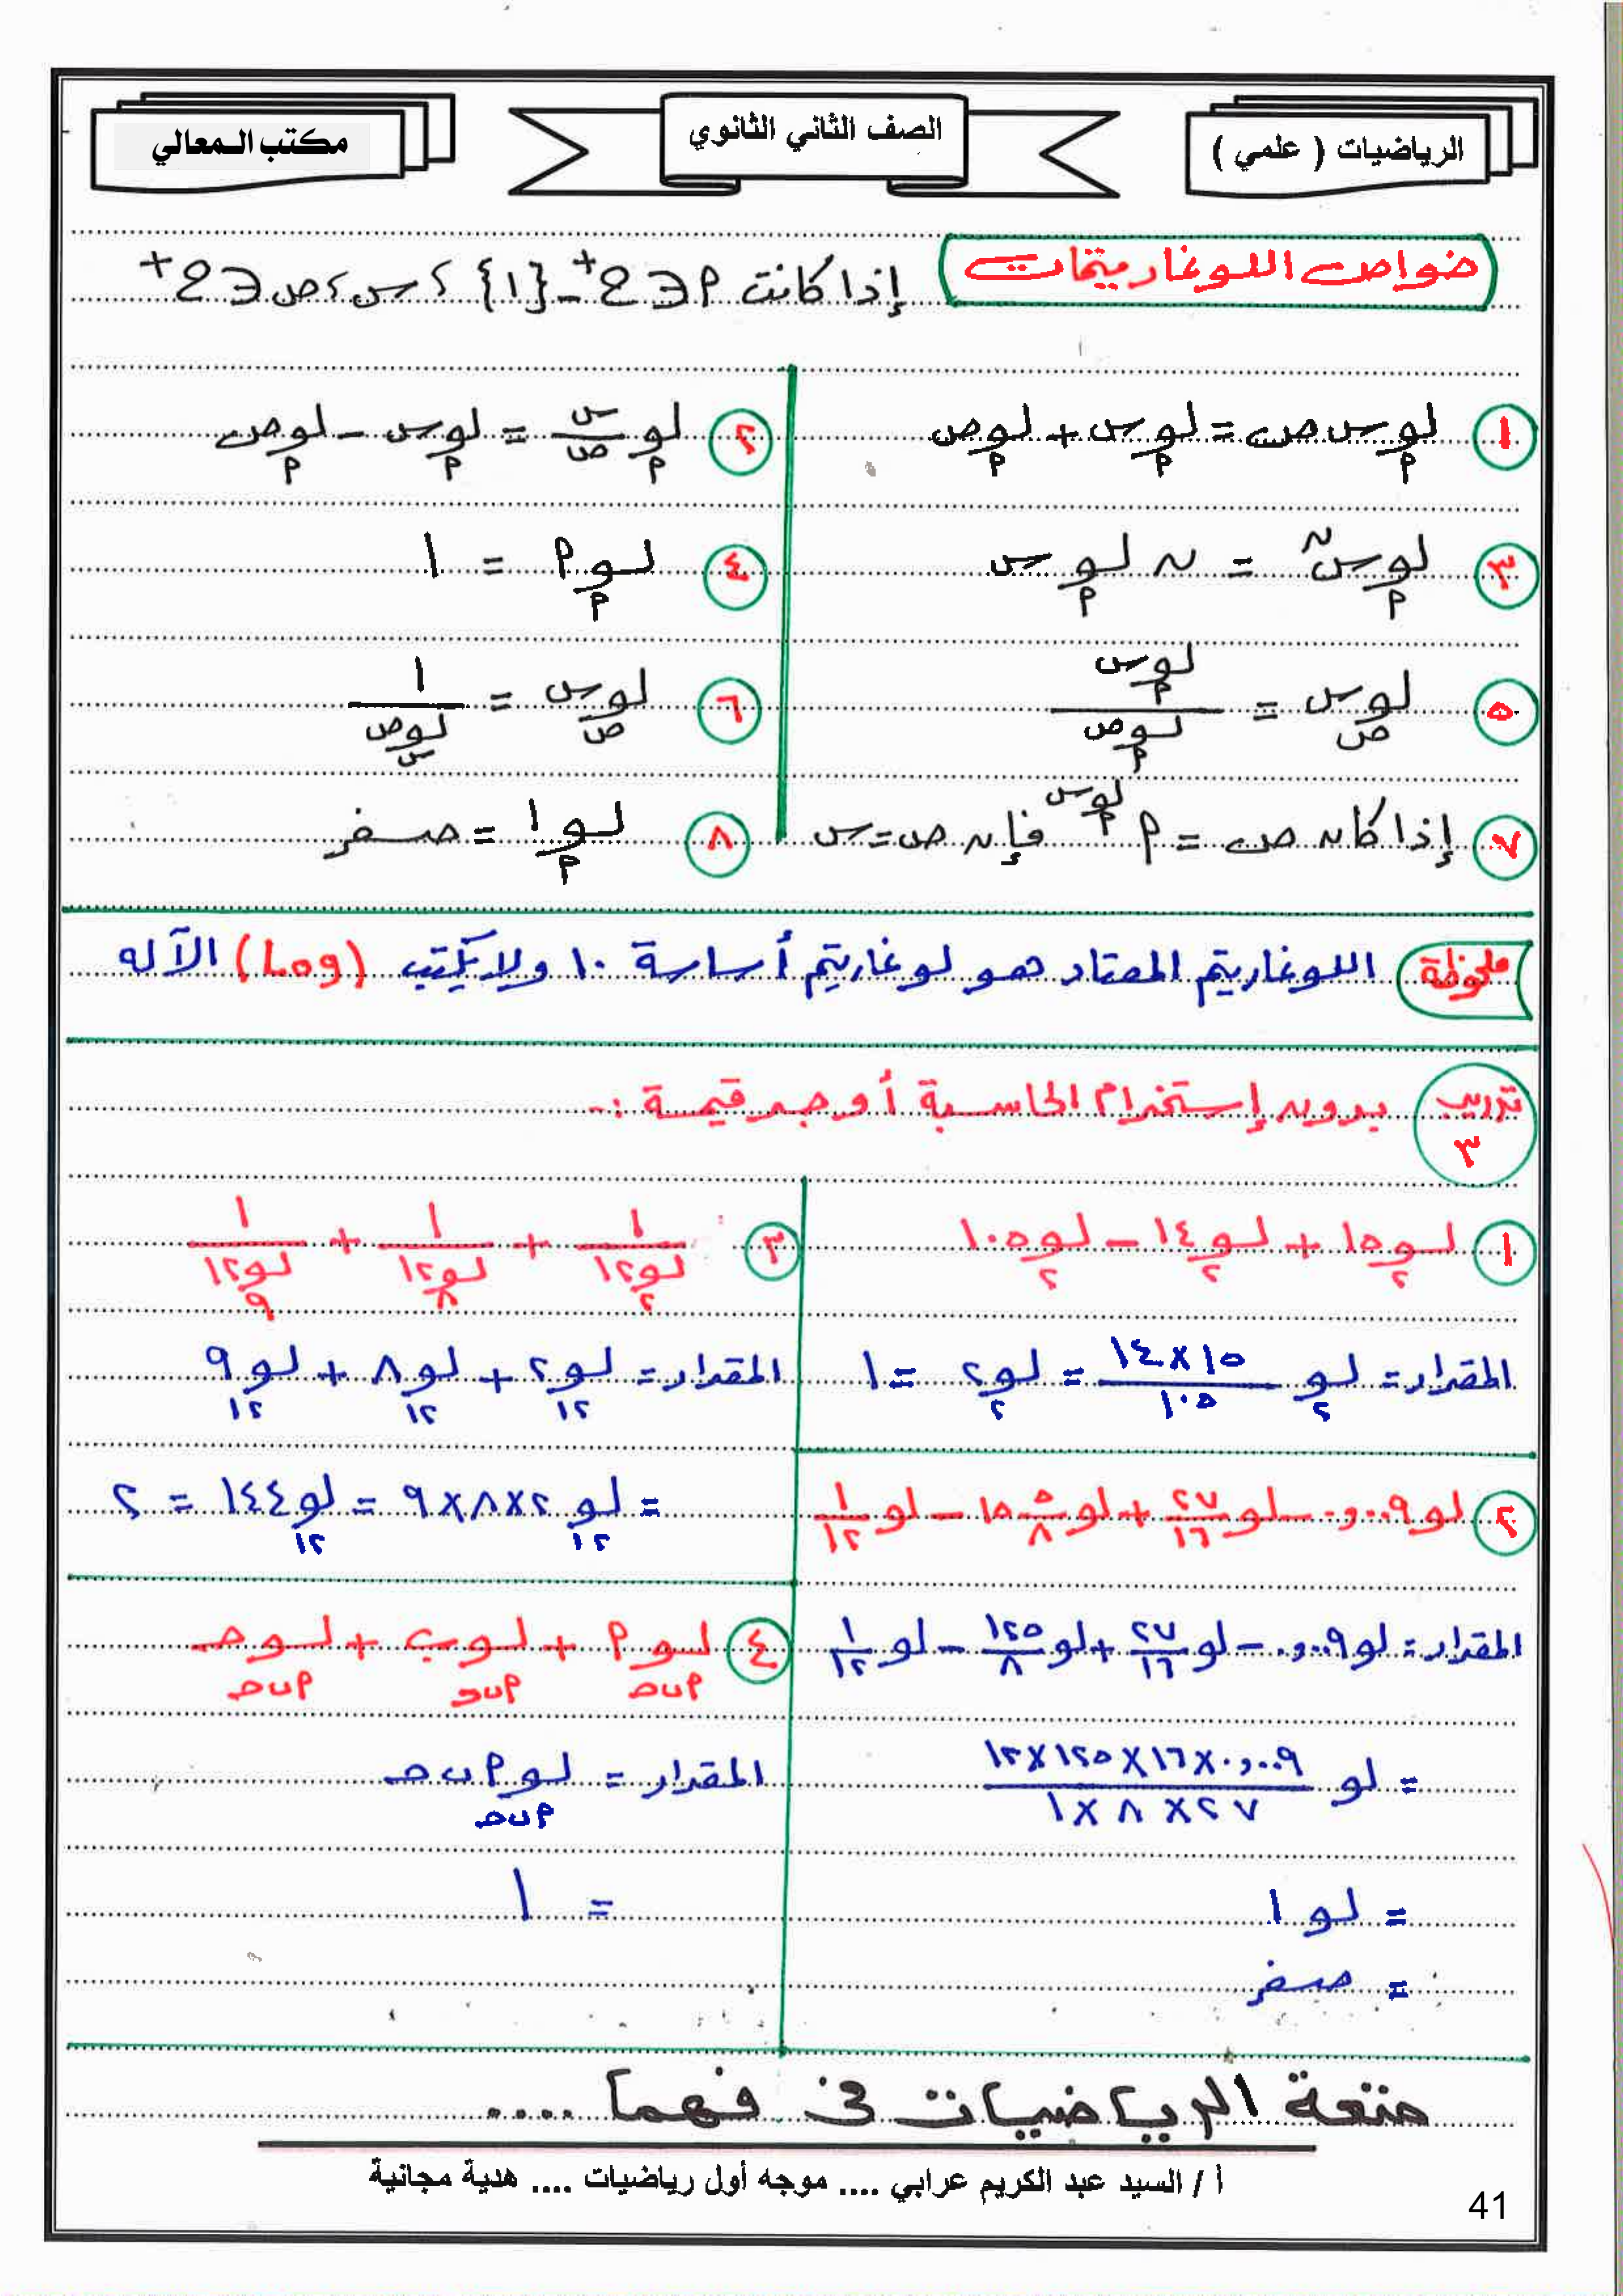 الرياضيات ( علمي )
الصف الثاني الثانوي
مكتب المعالي
خواص اللوغاريتمات
إذا كانت ٢ ∋ ح⁺ - {١} ، س ، ص ∋ ح⁺
١ لو_م س ص = لو_م س + لو_م ص
٢ لو_م س/ص = لو_م س - لو_م ص
٣ لو_م س^ن = ن لو_م س
٤ لو_م م = ١
٥ لو_ص س = لو_م س / لو_م ص
٦ لو_ص س = ١ / لو_س ص
٧ إذا كان ص = م^(لو_م س) فإن ص = س
٨ لو_م ١ = صفر
ملحوظة اللوغاريتم المعتاد هو لوغاريتم أساسة ١٠ ولا يكتب (Log) الآله
تدريب ٣ بدون إستخدام الحاسبة أوجد قيمة :-
١ لو_٢ ١٥ + لو_٢ ١٤ - لو_٢ ١٠٥
المقدار = لو_٢ (١٤ × ١٥)/١٠٥ = لو_٢ ٢ = ١
٢ لو ٠,٠٠٩ - لو ٢٧/١٦ + لو ١٥ ٥/٨ - لو ١/١٢
المقدار = لو ٠,٠٠٩ - لو ٢٧/١٦ + لو ١٢٥/٨ - لو ١/١٢
= لو (٠,٠٠٩ × ١٦ × ١٢٥ × ١٢)/(٢٧ × ٨ × ١)
= لو ١
= صفر
٣ ١/لو_٢ ١٢ + ١/لو_٨ ١٢ + ١/لو_٩ ١٢
المقدار = لو_١٢ ٢ + لو_١٢ ٨ + لو_١٢ ٩
= لو_١٢ ٢ × ٨ × ٩ = لو_١٢ ١٤٤ = ٢
٤ لو_مبحـ م + لو_مبحـ ب + لو_مبحـ حـ
المقدار = لو_مبحـ م ب حـ
= ١
متعة الرياضيات فى فهما ....
أ / السيد عبد الكريم عرابي .... موجه أول رياضيات .... هدية مجانية
41